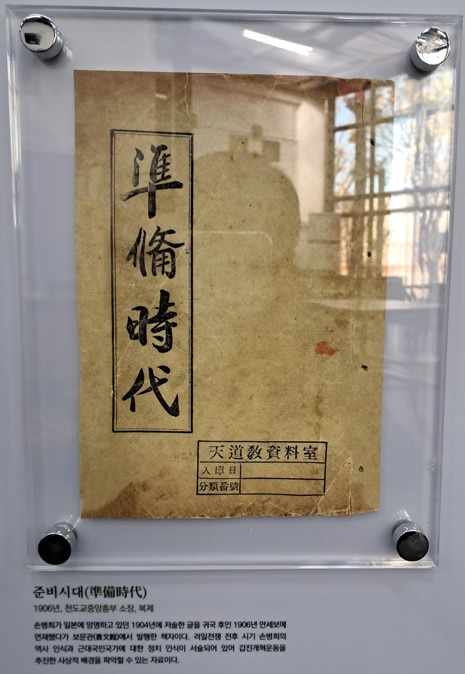 準備時代
天道敎資料室
入庫日
分類番號
준비시대(準備時代)
1906년, 천도교중앙총부 소장, 복제
손병희가 일본에 망명하고 있던 1904년에 저술한 글을 귀국 후인 1906년 만세보에
연재했다가 보문관(普文館)에서 발행한 책자이다. 러일전쟁 전후 시기 손병희의
역사 인식과 근대국민국가에 대한 정치 인식이 서술되어 있어 갑진개혁운동을
추진한 사상적 배경을 파악할 수 있는 자료이다.